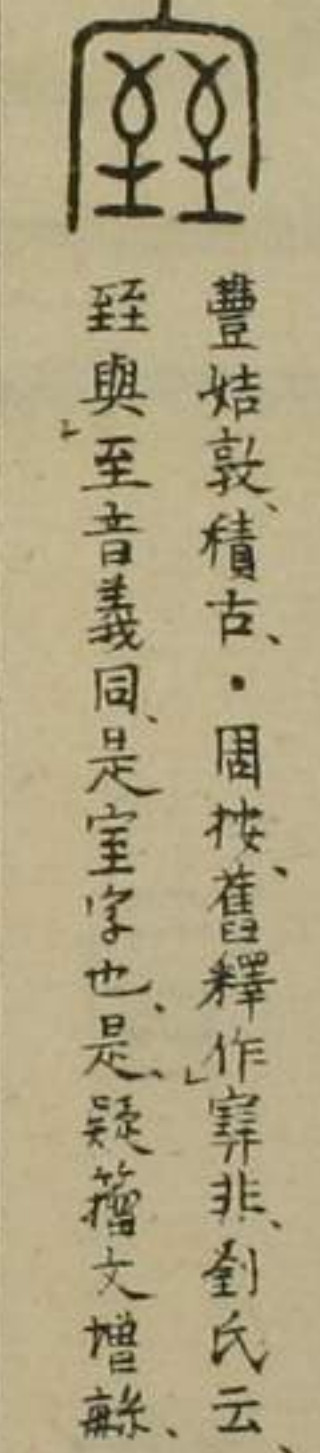 豐姞敦、積古、・固按、舊釋作㝣非、劉氏云、
臸與至音義同、是室字也、是、疑籀文增繇、